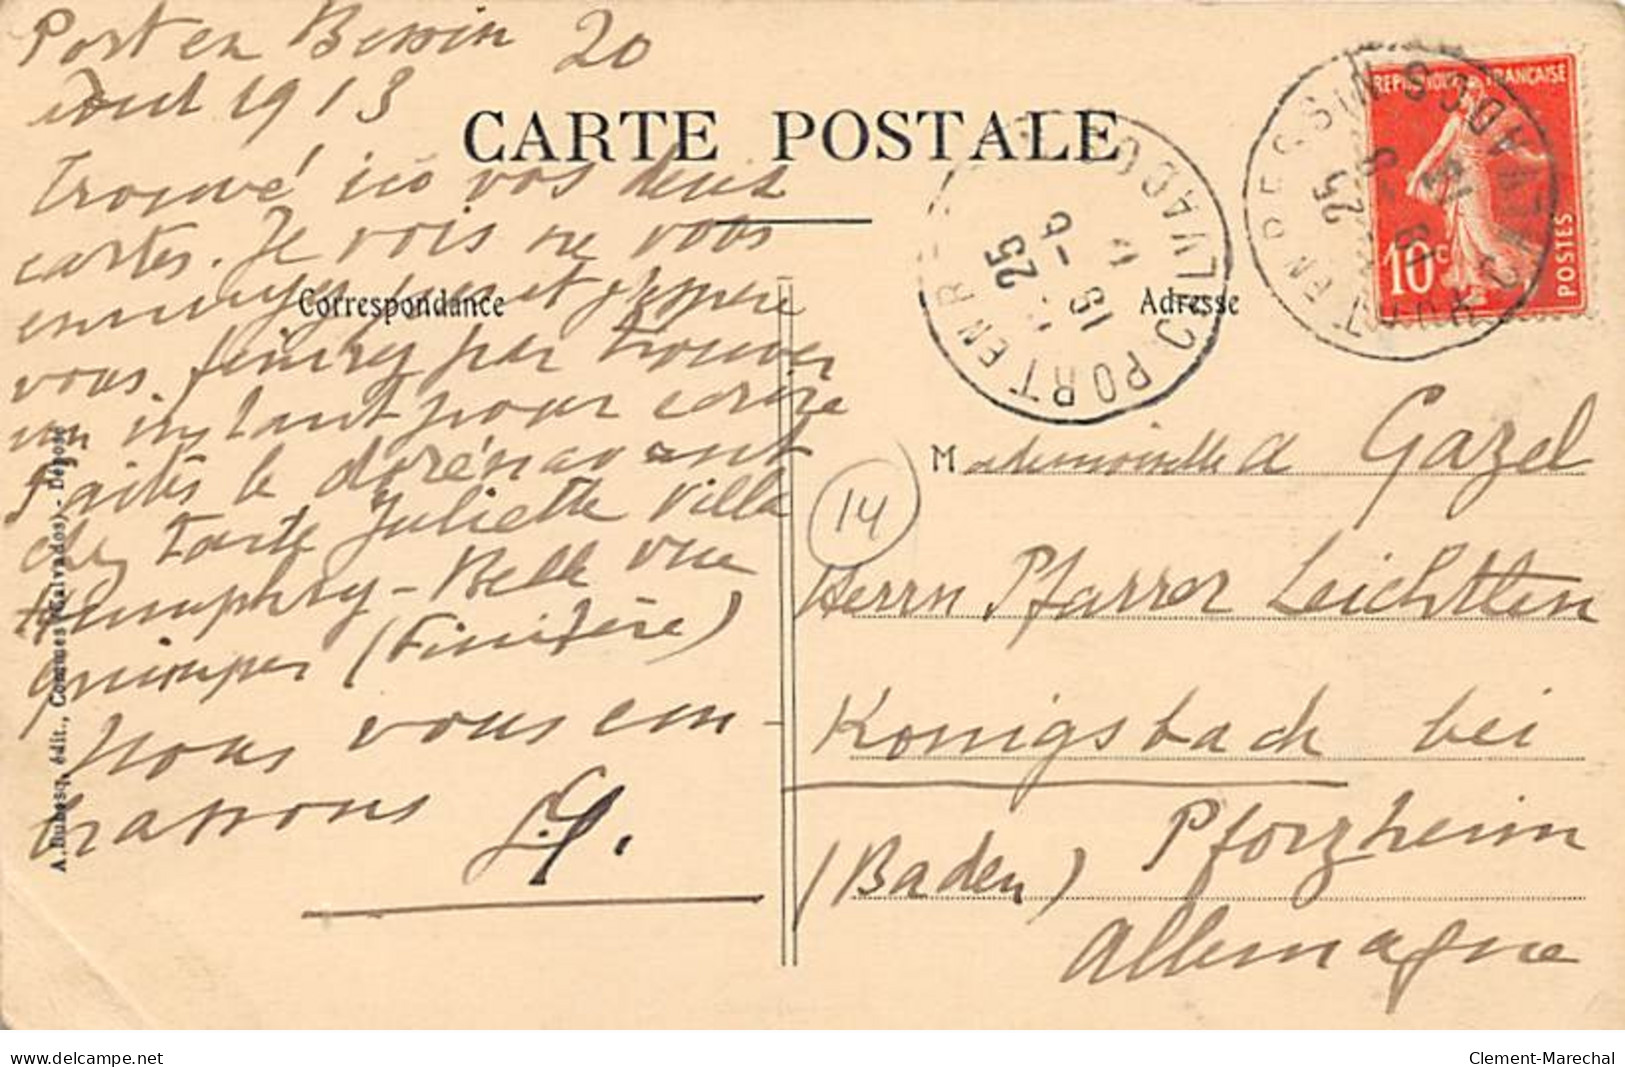 Port en Bessin 20
Aout 1913
CARTE POSTALE
Trouvé ici vos deux
cartes. Je vois ne vous
ennuyez pas et j'espère
vous finirez par trouver
un instant pour écrire
Faites le dorénavant
chez Tante Juliette Villa
Humphry - Belle vue
Quimper (Finistère)
Nous vous em-
brassons
Correspondance
A. Dubosq, édit., Commes (Calvados) - Déposé
Adresse
REPUBLIQUE FRANÇAISE
10c
POSTES
PORT EN BESSIN CALVADOS
25 -8 13
PORT EN BE CALVADOS
25 -8 13
14
Mademoiselle A Gazel
Herrn Pfarrer Leichtlen
Konigsbach bei
Pforzheim
(Baden)
Allemagne
www.delcampe.net
Clement-Marechal